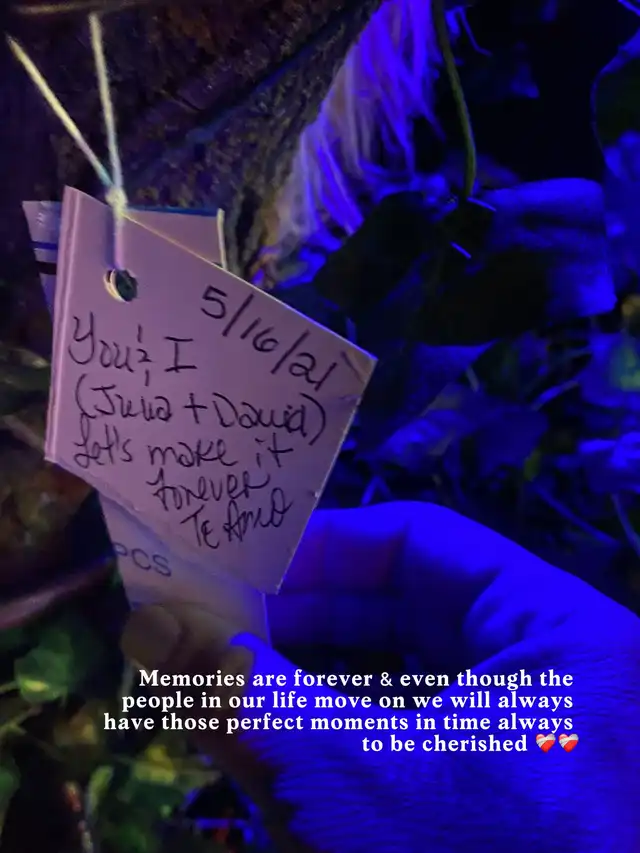 5/16/21
You & I
(Julia + David)
Let's make it
forever
Te Amo
PCS
Memories are forever & even though the
people in our life move on we will always
have those perfect moments in time always
to be cherished ❤️‍🩹❤️‍🩹